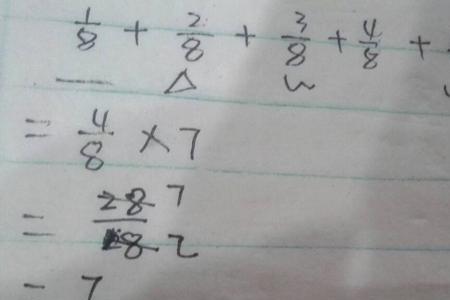 1/8 + 2/8 + 3/8 + 4/8 +
= 4/8 × 7
= 28 7 / 8 2
= 7